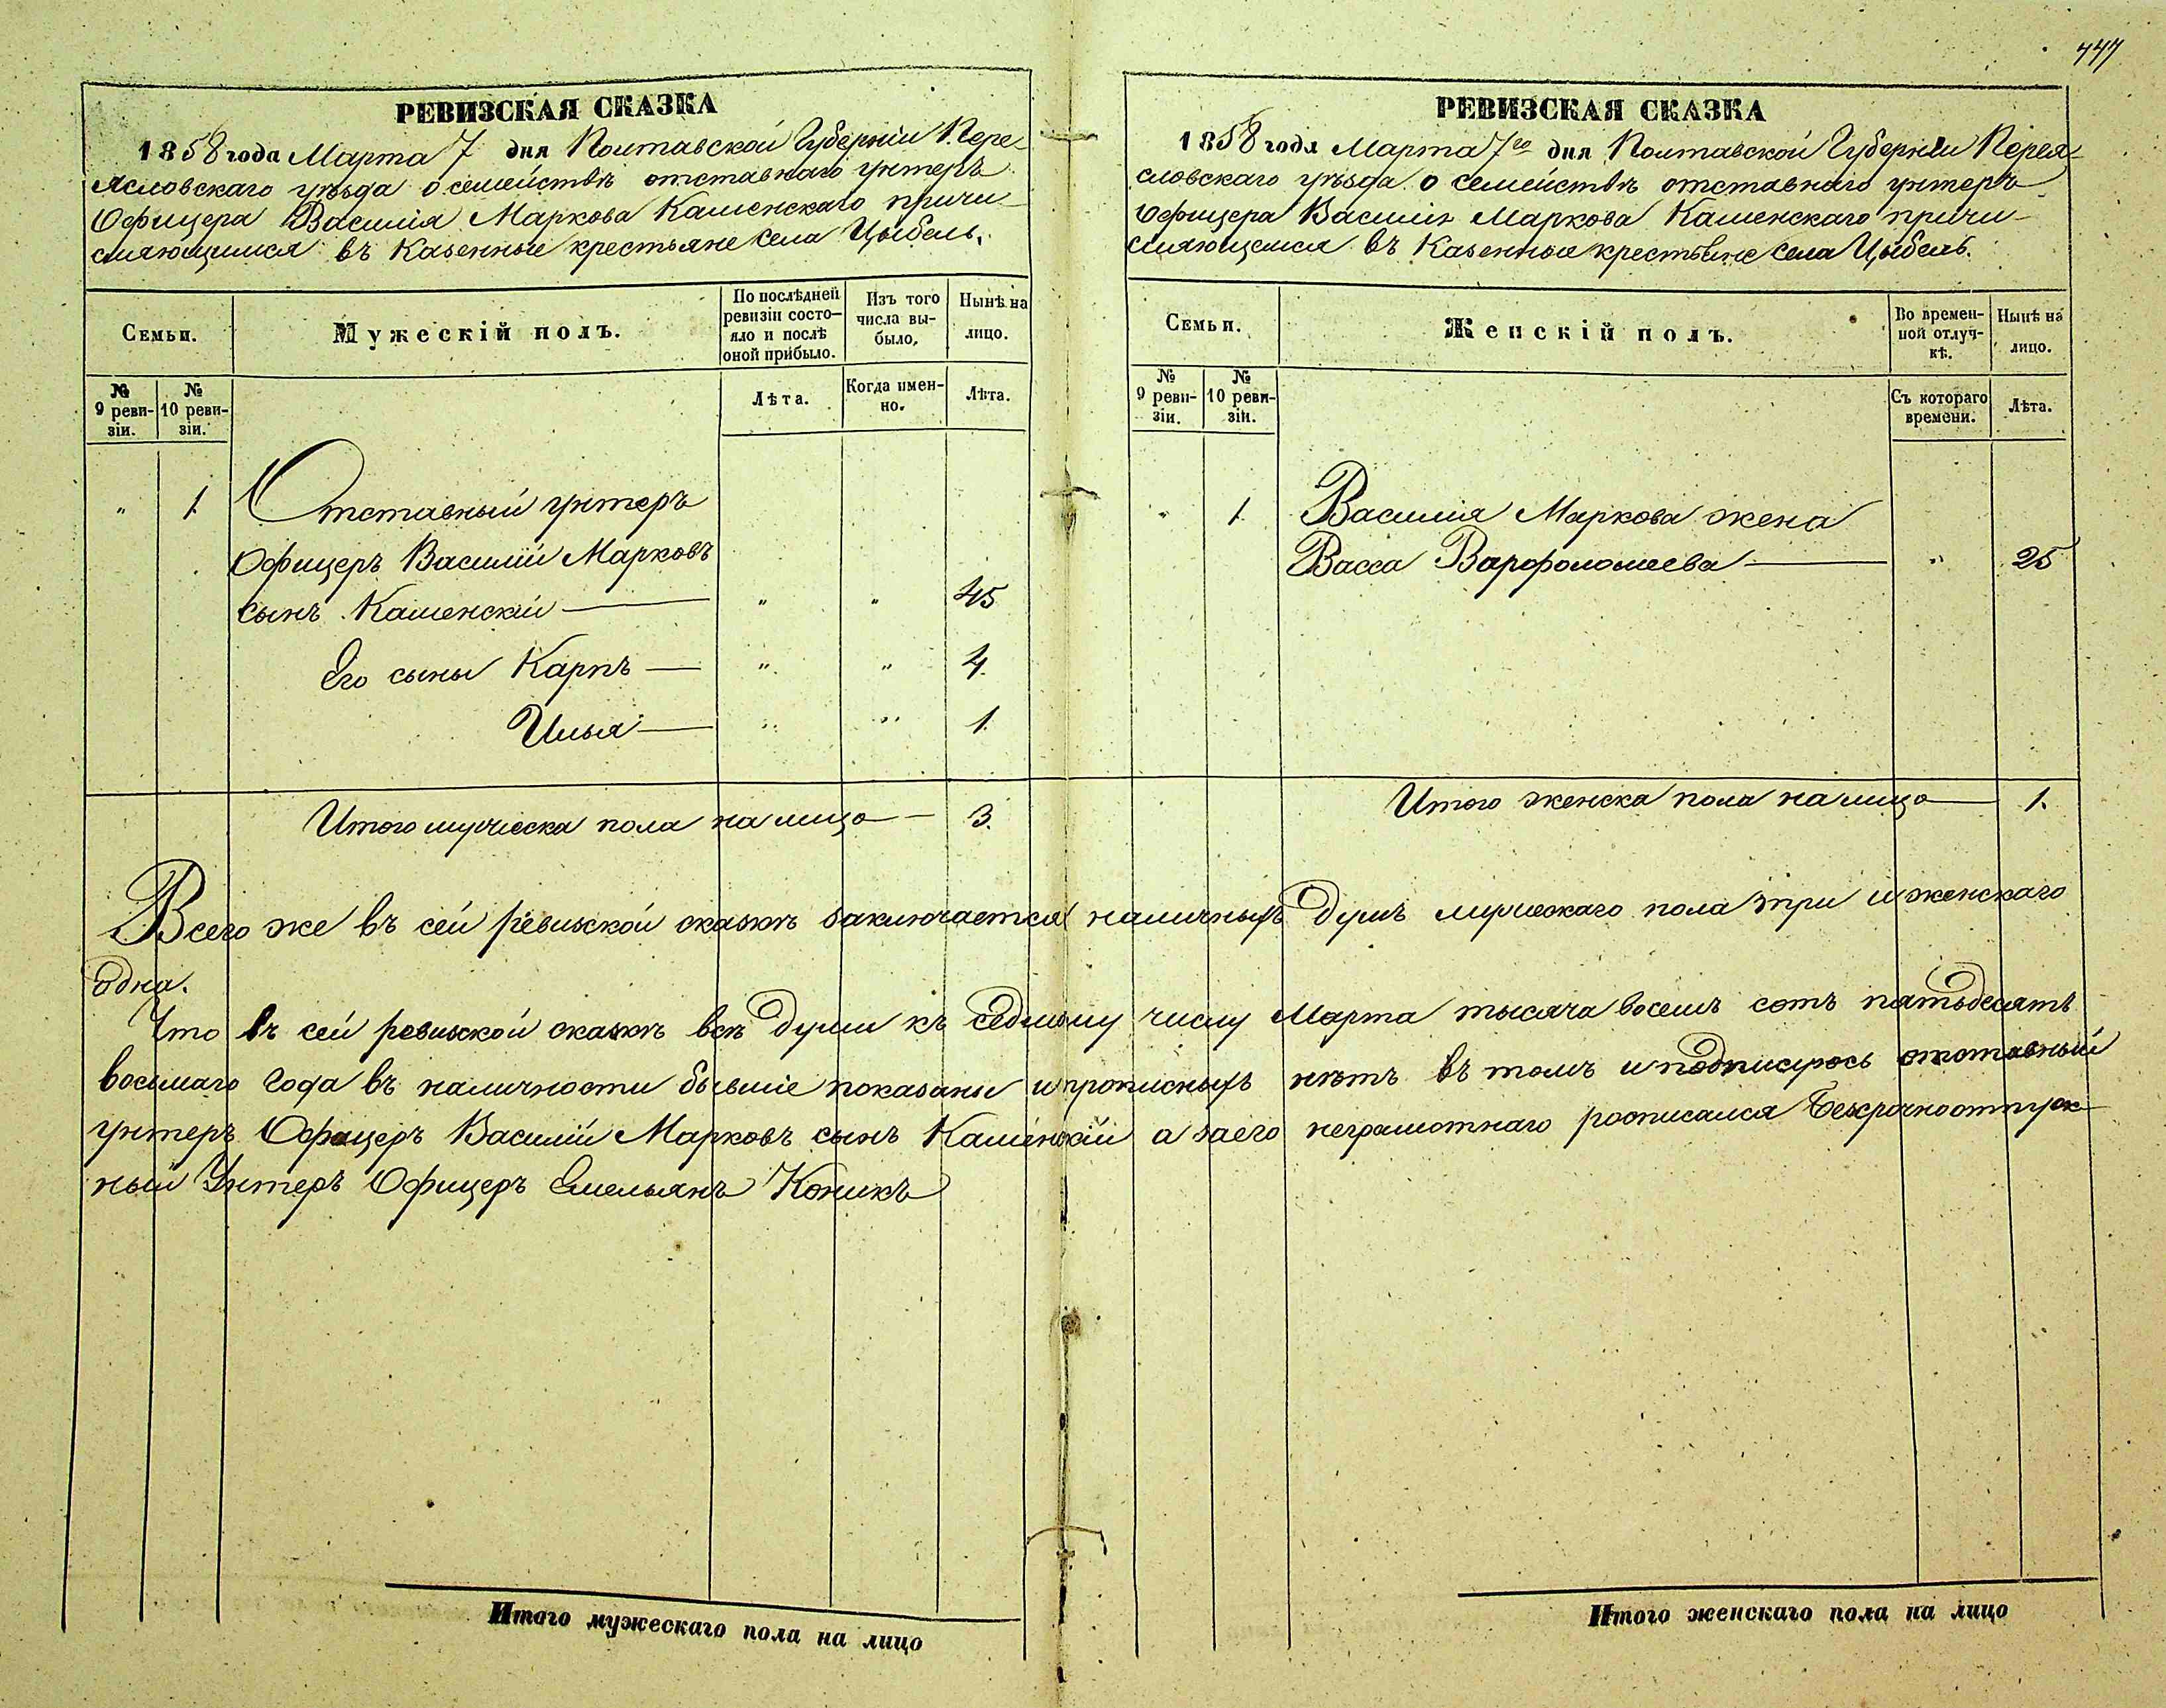 447
РЕВИЗСКАЯ СКАЗКА
1858 года Марта 7 дня Полтавской Губерніи Пере-
яславскаго уѣзда о семействѣ отставнаго унтеръ
Офицера Василія Маркова Каменскаго причи-
сляющимся въ Казенные крестьяне села Цыбель.
Семьи.
Мужескій полъ.
По послѣдней
ревизіи состо-
яло и послѣ
оной прибыло.
Изъ того
числа вы-
было,
Нынѣ на
лицо.
№
9 реви-
зіи.
№
10 реви-
зіи.
Лѣта.
Когда имен-
но.
Лѣта.
" 1. Отставный унтеръ
Офицеръ Василій Марковъ
сынъ Каменскій — " " 45
Его сыны Карпъ — " " 4.
Илья — " " 1.
Итого мужеска пола на лицо — 3.
РЕВИЗСКАЯ СКАЗКА
1858 года Марта 7го дня Полтавской Губерніи Перея-
словскаго уѣзда о семействѣ отставнаго унтеръ
Офицера Василія Маркова Каменскаго причи-
сляющемся въ Казенные крестьяне села Цыбель.
Семьи.
Женскій полъ.
Во времен-
ной отлуч-
кѣ.
Нынѣ на
лицо.
№
9 реви-
зіи.
№
10 реви-
зіи.
Съ котораго
времени.
Лѣта.
" 1. Василія Маркова жена
Васса Варфоломеева — " 25
Итого женска пола на лицо — 1.
Всего же въ сей ревизской сказкѣ заключается наличныхъ душъ мужескаго пола три и женскаго
одна.
Что въ сей ревизской сказкѣ всѣ души къ седмому числу Марта тысяча восемь сотъ пятьдесятъ
восьмаго года въ наличности бывшіе показаны и прописныхъ нѣтъ въ томъ и подписуюсь отставный
унтеръ Офицеръ Василій Марковъ сынъ Каменскій а за его неграмотнаго росписался Безсрочноотпуск-
ный Унтеръ Офицеръ Емельянъ Коникъ
Итого мужескаго пола на лицо
Итого женскаго пола на лицо